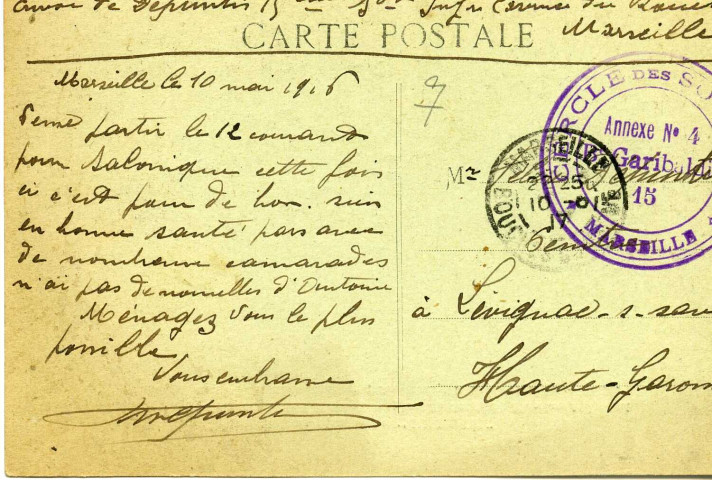 Envoi de
CARTE POSTALE
Marseille
Marseille le 10 mai 1916
partir le 12 courant
pour Salonique cette fois
ci c'est pour de bon. suis
en bonne santé pars avec
de nombreux camarades
n'ai pas de nouvelles d'Antoine
Ménagez vous le plus
possible
Vous embrasse
7
CERCLE DES SO
Annexe N° 4
Garibaldi
15
MARSEILLE
MARSEILLE
10 -5
Mr
à Lévignac-s-sav
Haute-Garon